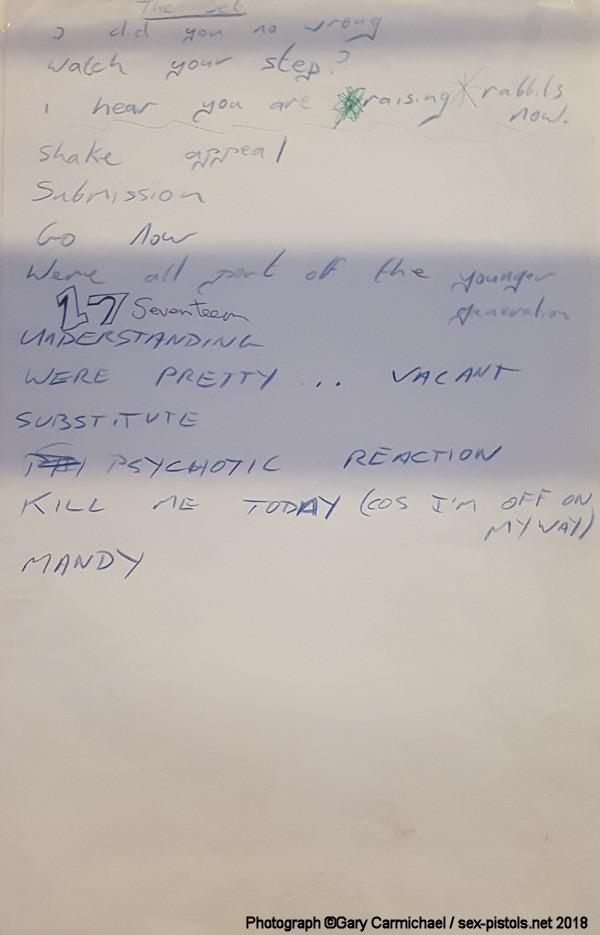 The Set
I did you no wrong
watch your step?
i hear you are raising rabbits
now.
shake appeal
Submission
Go Now
Were all part off the younger
generation
17 Seventeen
UNDERSTANDING
WERE PRETTY ... VACANT
SUBSTITUTE
PSYCHOTIC REACTION
KILL ME TODAY (COS I'M OFF ON
MY WAY)
MANDY
Photograph ©Gary Carmichael / sex-pistols.net 2018